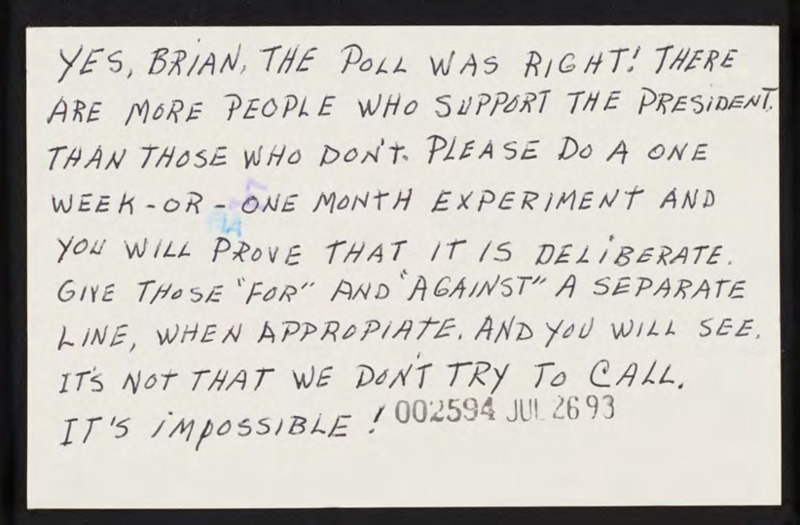 YES, BRIAN, THE POLL WAS RIGHT! THERE
ARE MORE PEOPLE WHO SUPPORT THE PRESIDENT.
THAN THOSE WHO DON'T. PLEASE DO A ONE
WEEK-OR-ONE MONTH EXPERIMENT AND
YOU WILL PROVE THAT IT IS DELIBERATE.
GIVE THOSE "FOR" AND "AGAINST" A SEPARATE
LINE, WHEN APPROPIATE. AND YOU WILL SEE.
IT'S NOT THAT WE DON'T TRY TO CALL.
IT'S IMPOSSIBLE! 002594 JUL 26 93